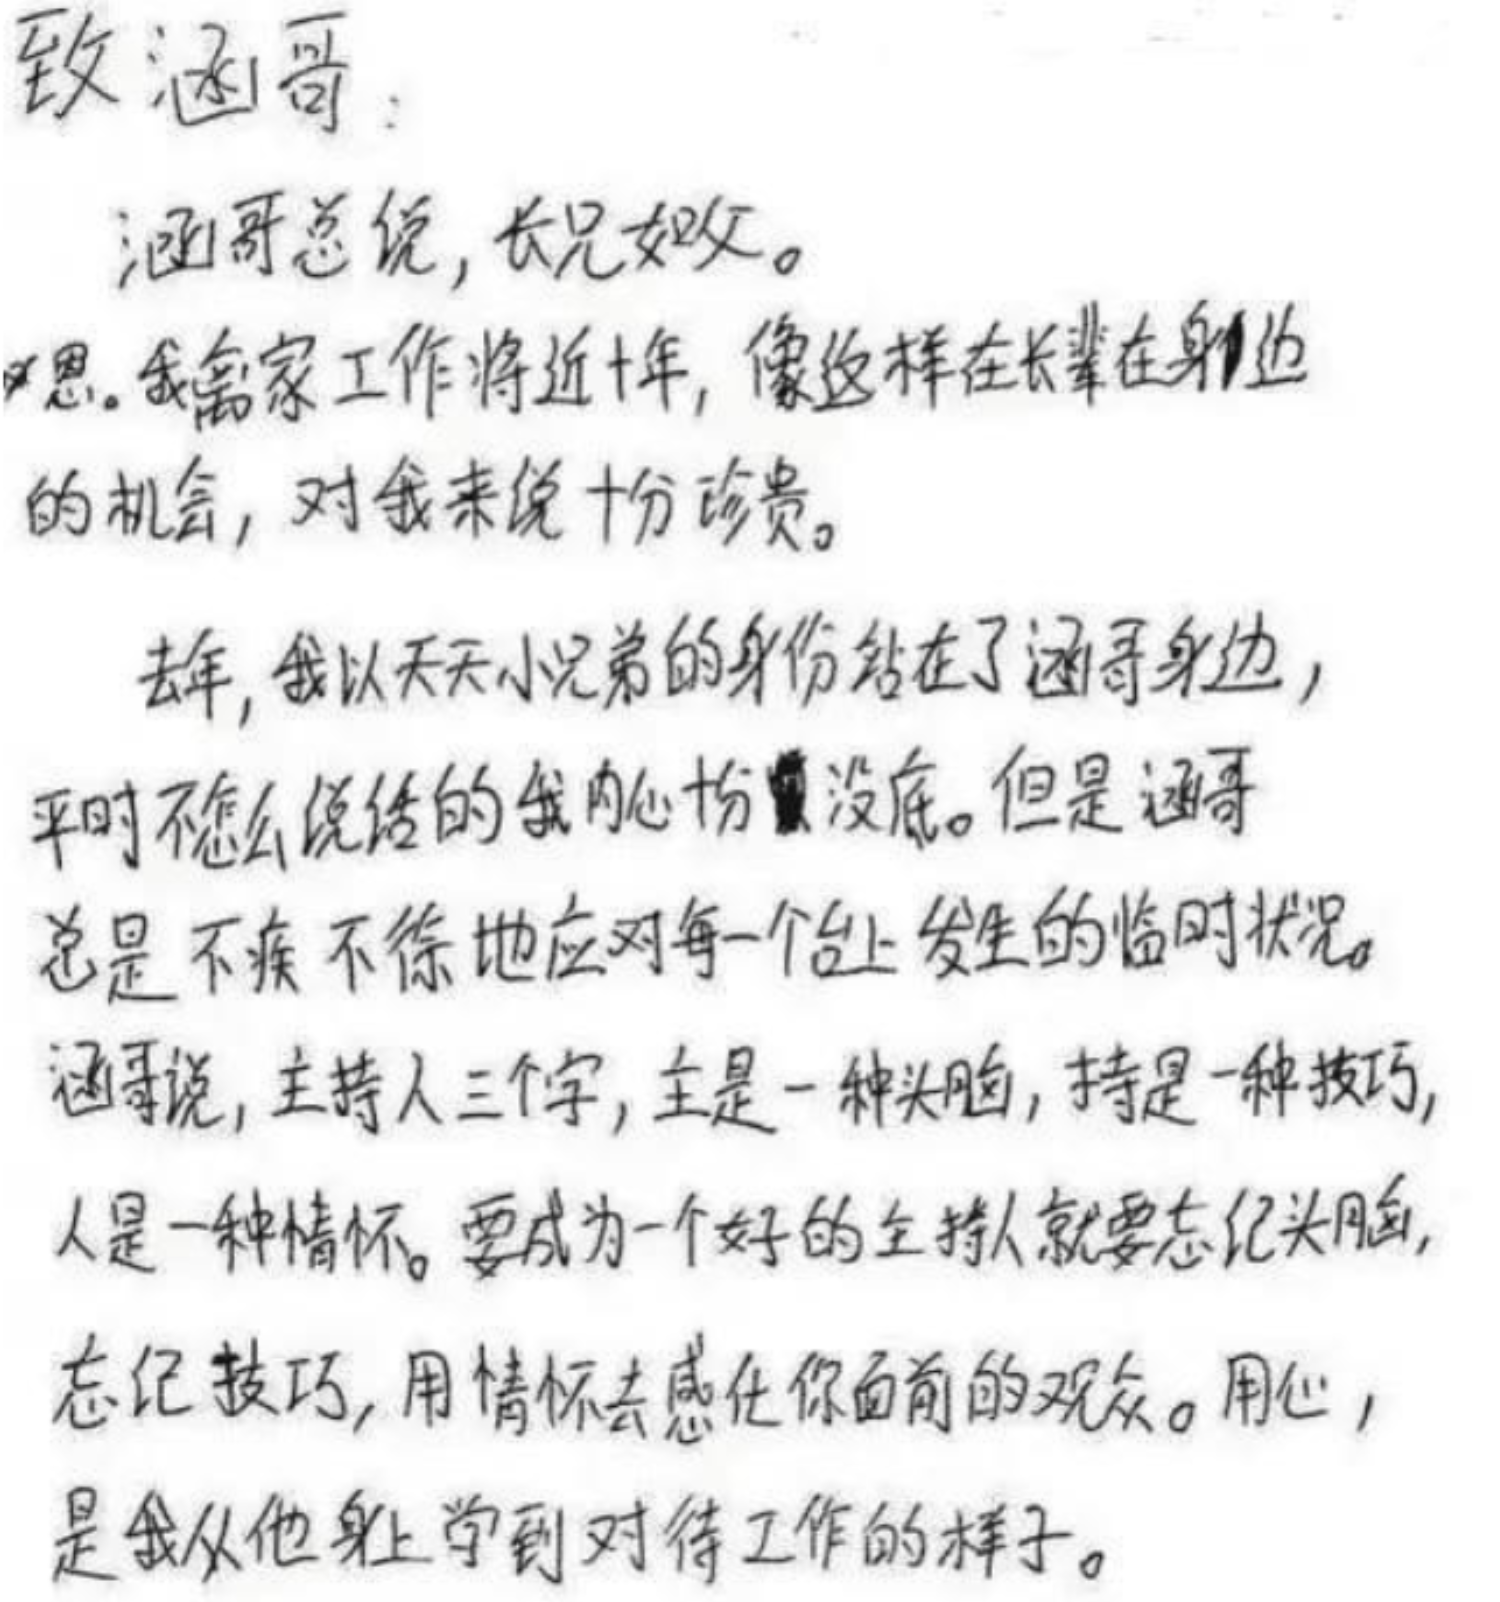 致涵哥:
涵哥总说,长兄如父。
恩。我离家工作将近十年,像这样在长辈在身边
的机会,对我来说十分珍贵。
去年,我以天天小兄弟的身份站在了涵哥身边,
平时不怎么说话的我内心十份没底。但是涵哥
总是不疾不徐地应对每一个台上发生的临时状况。
涵哥说,主持人三个字,主是一种头脑,持是一种技巧,
人是一种情怀。要成为一个好的主持人就要忘记头脑,
忘记技巧,用情怀去感化你面前的观众。用心,
是我从他身上学到对待工作的样子。